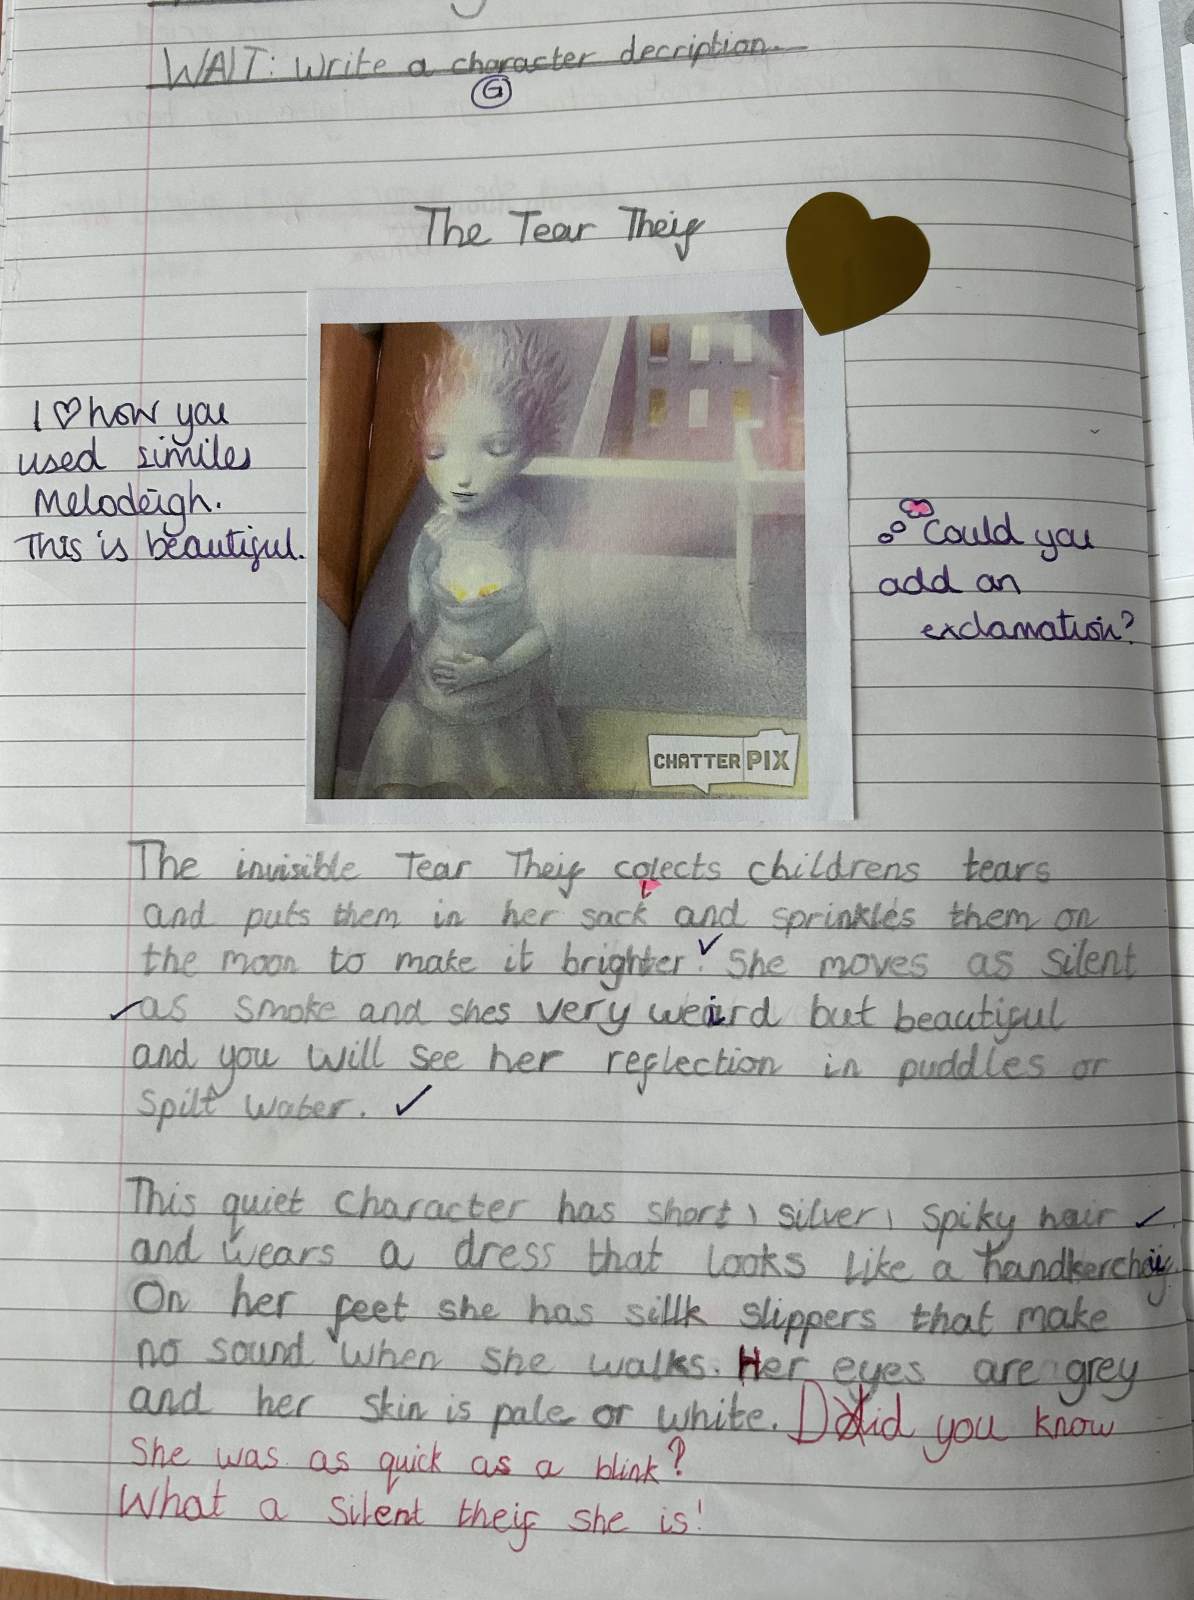 WALT: Write a character decription.
G
The Tear Theif
I ♡ how you
used similes
Melodeigh.
This is beautiful.
Could you
add an
exclamation?
CHATTERPIX
The invisible Tear Theif colects childrens tears
and puts them in her sack and sprinkles them on
the moon to make it brighter. She moves as silent
as smoke and shes very weird but beautiful
and you will see her reflection in puddles or
spilt water.
This quiet character has short, silver, spiky hair
and wears a dress that looks like a handkercheif.
On her feet she has sillk slippers that make
no sound when she walks. Her eyes are grey
and her skin is pale or white. Did you know
she was as quick as a blink?
What a silent theif she is!